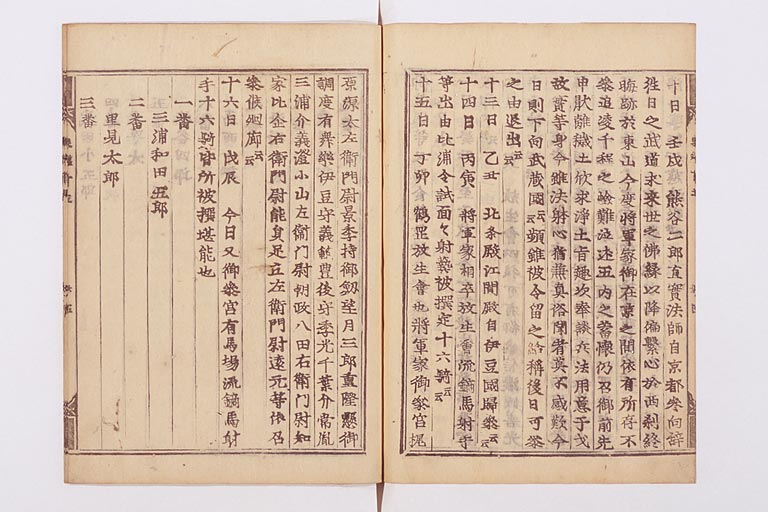 十日 壬戌 熊谷二郎直實法師自京都參向辞
往日之武道求来世之佛縁以降偏繋心於西刹終
晦跡於東山今度將軍家御在京之間依有所存不
參追凌千程之嶮難泣述五内之蓄懐仍召御前先
申猒離穢土欣求淨土旨趣次奉談兵法用意干戈
故實等身今雖法躰心猶兼真俗聞者莫不感歎今
日則下向武蔵國云云頻雖被令留之給稱後日可參
之由退出云云
十三日 乙丑 北条殿江間殿自伊豆國歸參云云
十四日 丙寅 將軍家相卒放生會流鏑馬射手
等出由比浦令試面々射藝被撰定十六騎云云
十五日 丁卯 鶴罡放生會也將軍家御參宮梶
原源太左衛門尉景季持御劔望月三郎重隆懸御
調度有舞樂伊豆守義範豊後守季光千葉介常胤
三浦介義澄小山左衛門尉朝政八田右衛門尉知
家比企右衛門尉能員足立左衛門尉遠元等依召
參候廻廊云云
十六日 戊辰 今日又御參宮有馬場流鏑馬射
手十六騎皆所被撰堪能也
一番
三浦和田五郎
二番
里見太郎
三番